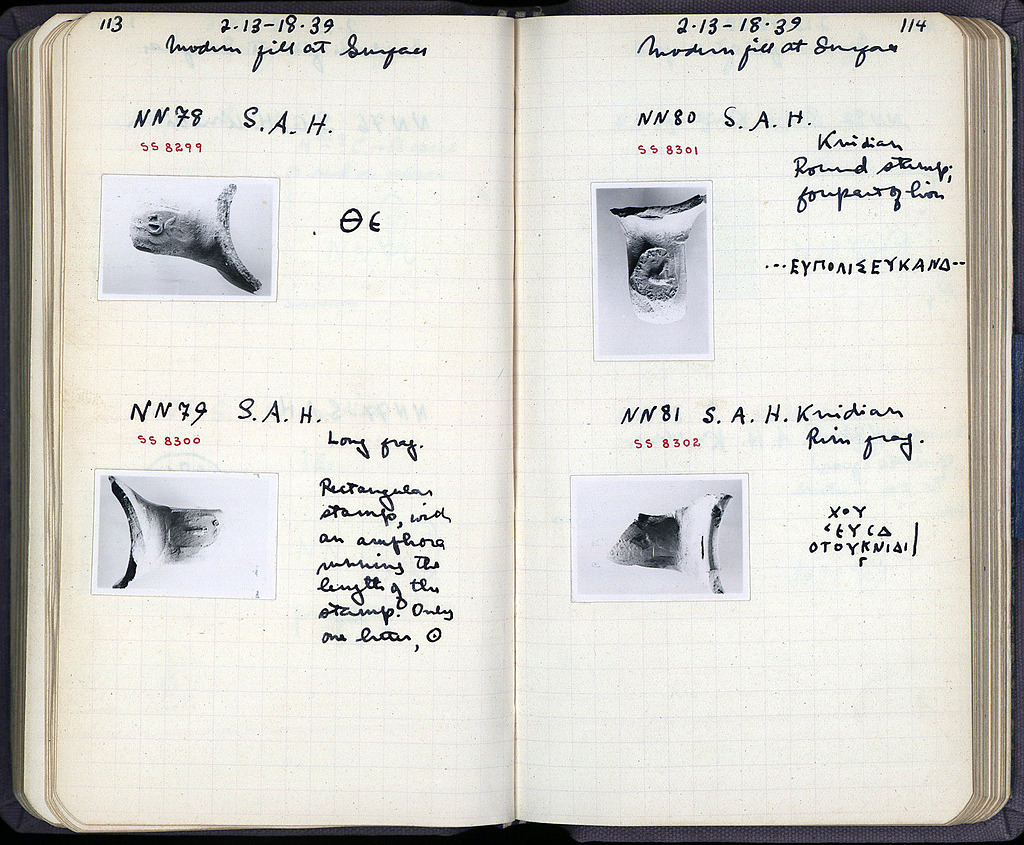 113
2-13-18-39
Modern fill at Surface
NN78 S.A.H.
SS 8299
Θϵ
NN79 S.A.H.
SS 8300
Long frag.
Rectangular
stamp, with
an amphora
running the
length of the
stamp. Only
one letter, ʘ
2-13-18-39
114
Modern fill at Surface
NN80 S.A.H.
SS 8301
Knidian
Round stamp;
forepart of lion
...ΕΥΠΟΛΙΣΕΥΚΑΝΔ--
NN81 S.A.H. Knidian
SS 8302
Rim frag.
ΧΟΥ
ΟΤΟΥΚΝΙΔΙ
Γ